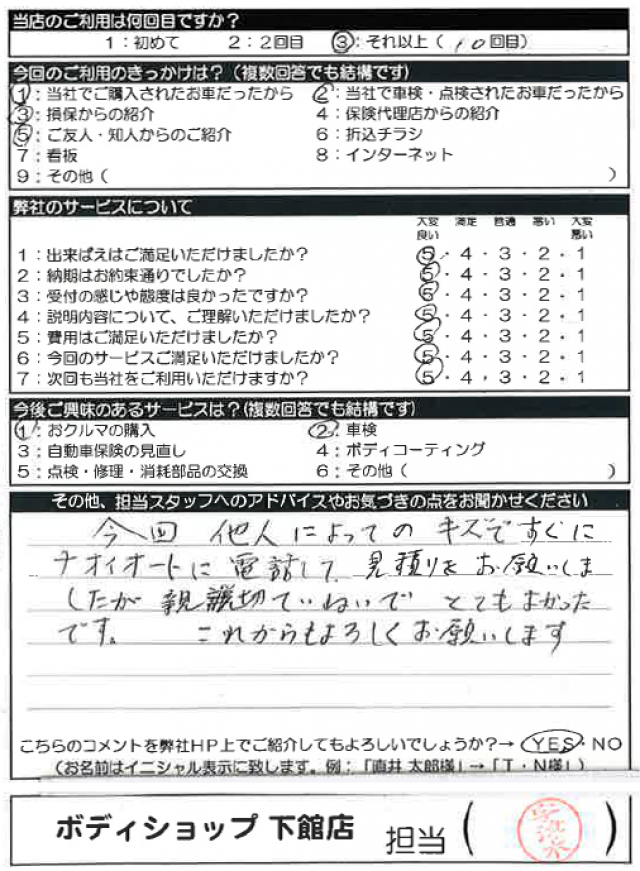 当店のご利用は何回目ですか？
1：初めて　2：2回目　3：それ以上（ 10 回目）
今回のご利用のきっかけは？（複数回答でも結構です）
1：当社でご購入されたお車だったから　2：当社で車検・点検されたお車だったから
3：損保からの紹介　4：保険代理店からの紹介
5：ご友人・知人からのご紹介　6：折込チラシ
7：看板　8：インターネット
9：その他（　）
弊社のサービスについて
大変良い　満足　普通　悪い　大変悪い
1：出来ばえはご満足いただけましたか？　5・4・3・2・1
2：納期はお約束通りでしたか？　5・4・3・2・1
3：受付の感じや態度は良かったですか？　5・4・3・2・1
4：説明内容について、ご理解いただけましたか？　5・4・3・2・1
5：費用はご満足いただけましたか？　5・4・3・2・1
6：今回のサービスご満足いただけましたか？　5・4・3・2・1
7：次回も当社をご利用いただけますか？　5・4・3・2・1
今後ご興味のあるサービスは？（複数回答でも結構です）
1：おクルマの購入　2：車検
3：自動車保険の見直し　4：ボディコーティング
5：点検・修理・消耗部品の交換　6：その他（　）
その他、担当スタッフへのアドバイスやお気づきの点をお聞かせください
今回 他人によってのキズですぐに
ナオイオートに電話して、見積りをお願いしま
したが 親切ていねいで とてもよかった
です。 これからもよろしくお願いします
こちらのコメントを弊社HP上でご紹介してもよろしいでしょうか？→ YES・NO
（お名前はイニシャル表示に致します。例：「直井 太郎様」→「T・N様」）
ボディショップ 下館店　担当（　）